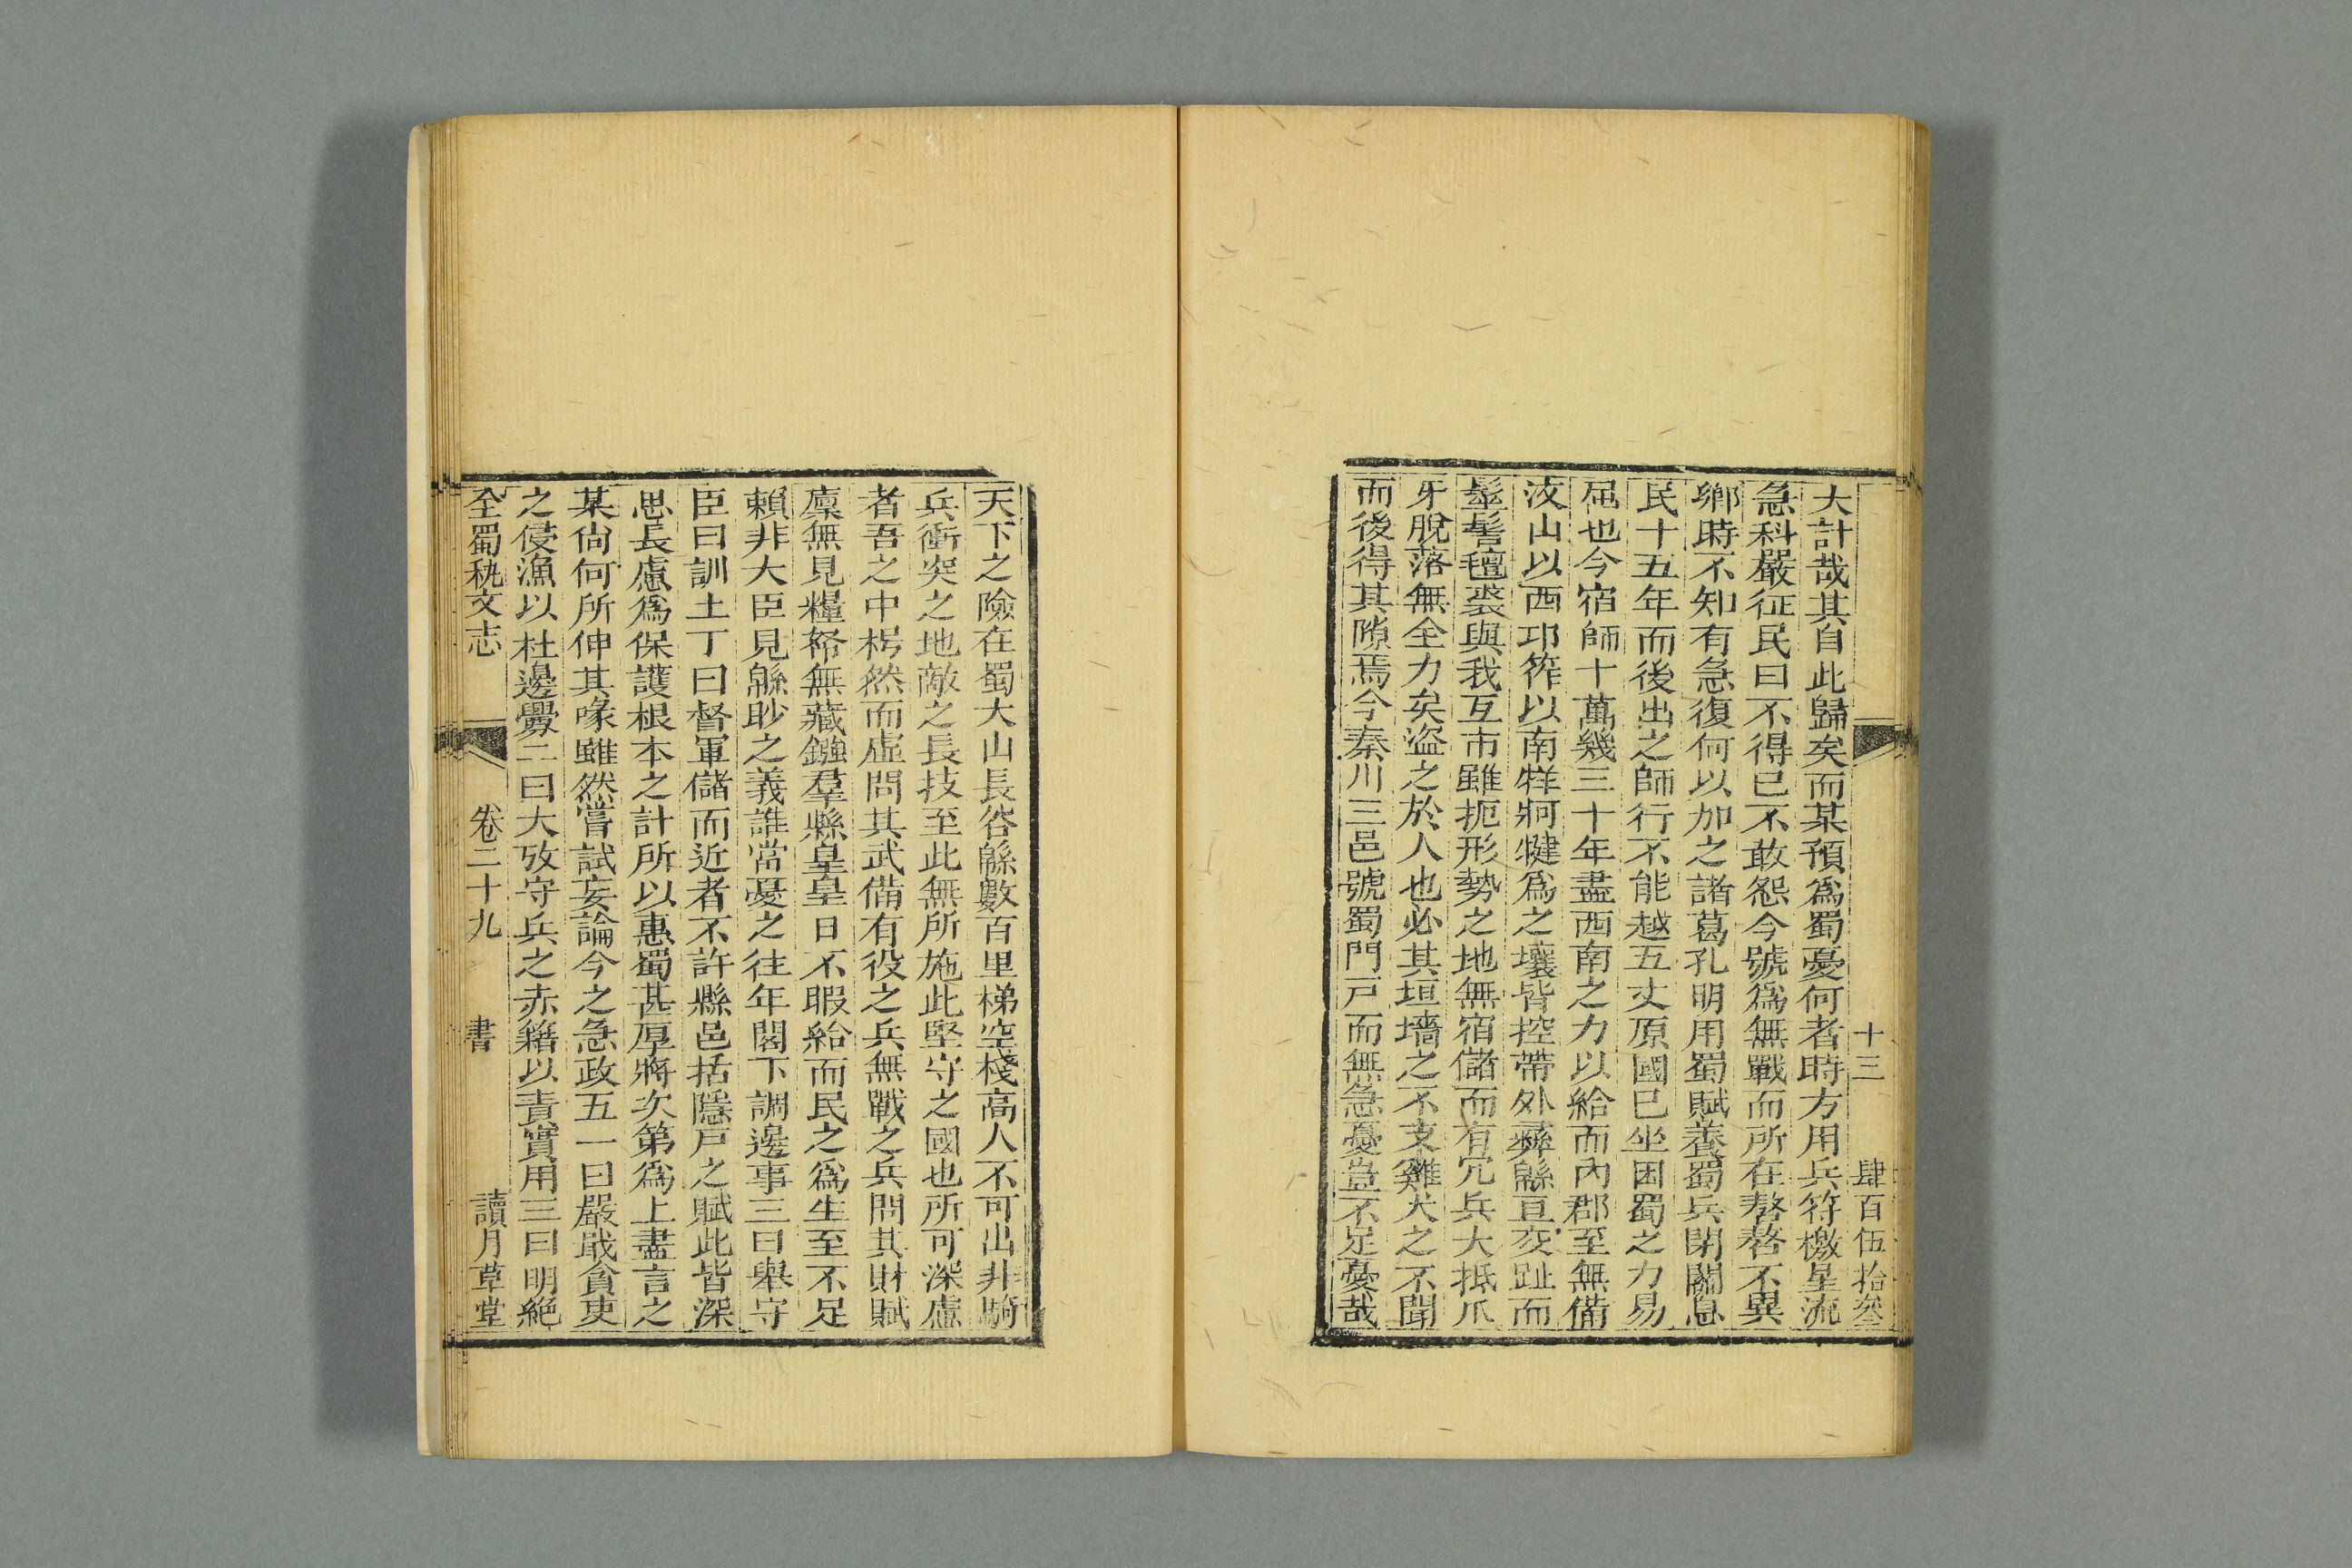 十三 肆百伍拾叁
大計哉其自此歸矣而某預爲蜀憂何者時方用兵符檄星流
急科嚴征民曰不得已不敢怨今號爲無戰而所在嗸嗸不異
鄉時不知有急復何以加之諸葛孔明用蜀賦養蜀兵閉關息
民十五年而後出之師行不能越五丈原國已坐困蜀之力易
屈也今宿師十萬幾三十年盡西南之力以給而內郡至無備
汶山以西邛筰以南牂牁犍爲之壤皆控帶外彞緜亘交趾而
髽髻氊裘與我互市雖扼形勢之地無宿儲而有冗兵大抵爪
牙脫落無全力矣盜之於人也必其垣墻之不支雞犬之不聞
而後得其隙焉今秦川三邑號蜀門戸而無急憂豈不足憂哉
天下之險在蜀大山長谷緜數百里梯空棧高人不可出非騎
兵衝突之地敵之長技至此無所施此堅守之國也所可深慮
者吾之中枵然而虛問其武備有役之兵無戰之兵問其財賦
廩無見糧帑無藏鏹羣縣皇皇日不暇給而民之爲生至不足
賴非大臣見緜眇之義誰當憂之往年閣下調邊事三曰舉守
臣曰訓土丁曰督軍儲而近者不許縣邑括隱戸之賦此皆深
思長慮爲保護根本之計所以惠蜀甚厚將次第爲上盡言之
某尙何所伸其喙雖然嘗試妄論今之急政五一曰嚴戢貪吏
之侵漁以杜邊釁二曰大攷守兵之赤籍以責實用三曰明絕
全蜀秇文志 卷二十九 書 讀月草堂